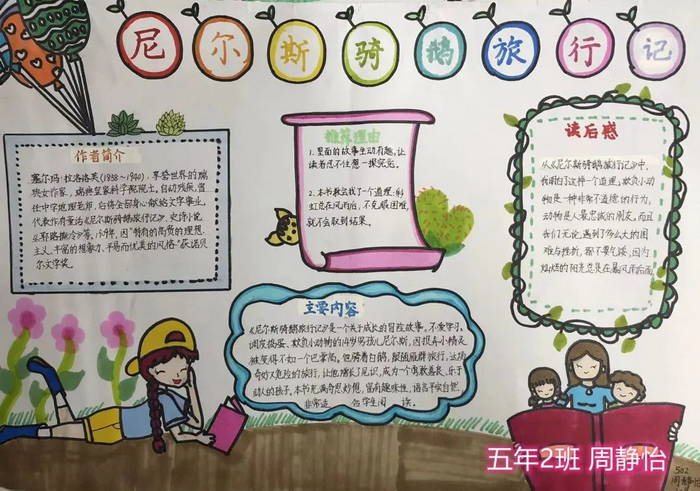 尼尔斯骑鹅旅行记
作者简介
塞尔玛·拉洛洛夫(1858~1940),享誉世界的瑞
典女作家,瑞典皇家科学院院士。自幼残疾,曾
任中学地理老师,后将全部身心献给文学事业。
代表作有童话《尼尔斯骑鹅旅行记》、史诗小说
主义、丰富的想象力、平易而优美的风格"获诺贝
尔文学奖。
推荐理由
1.里面的故事生动有趣,让
读者忍不住想一探究竟。
2.本书教会我了一个道理:彩
虹总在风雨后,不克服困难,
就不会取到结果。
读后感
从《尼尔斯骑鹅旅行记》中,
我明白了这样一个道理,欺负小动
物是一种非常不道德的行为,
动物是人最忠诚的朋友。而且
我们无论遇到了多么大的困
难与挫折,都不要气馁,因为
灿烂的阳光总是在暴风雨后面
主要内容
《尼尔斯骑鹅旅行记》是一个关于成长的冒险故事,不爱学习、
调皮捣蛋、欺负小动物的14岁男孩儿尼尔斯,因捉弄小精灵
被变得不如一个巴掌高。他骑着白鹅,跟随雁群旅行,这场
奇妙又危险的旅行,让他增长了见识,成为一个勇敢善良、乐于
助人的孩子。本书充满奇思妙想,富有趣味性,语言平实自然,
非常适 学生阅 读。
五年2班 周静怡
502
周静怡